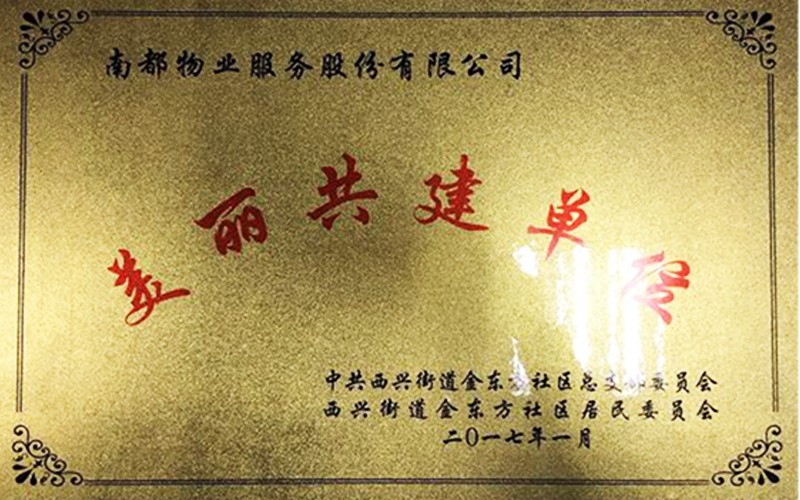 南都物业服务股份有限公司
美丽共建单位
中共西兴街道金东方社区总支部委员会
西兴街道金东方社区居民委员会
二0一七年一月